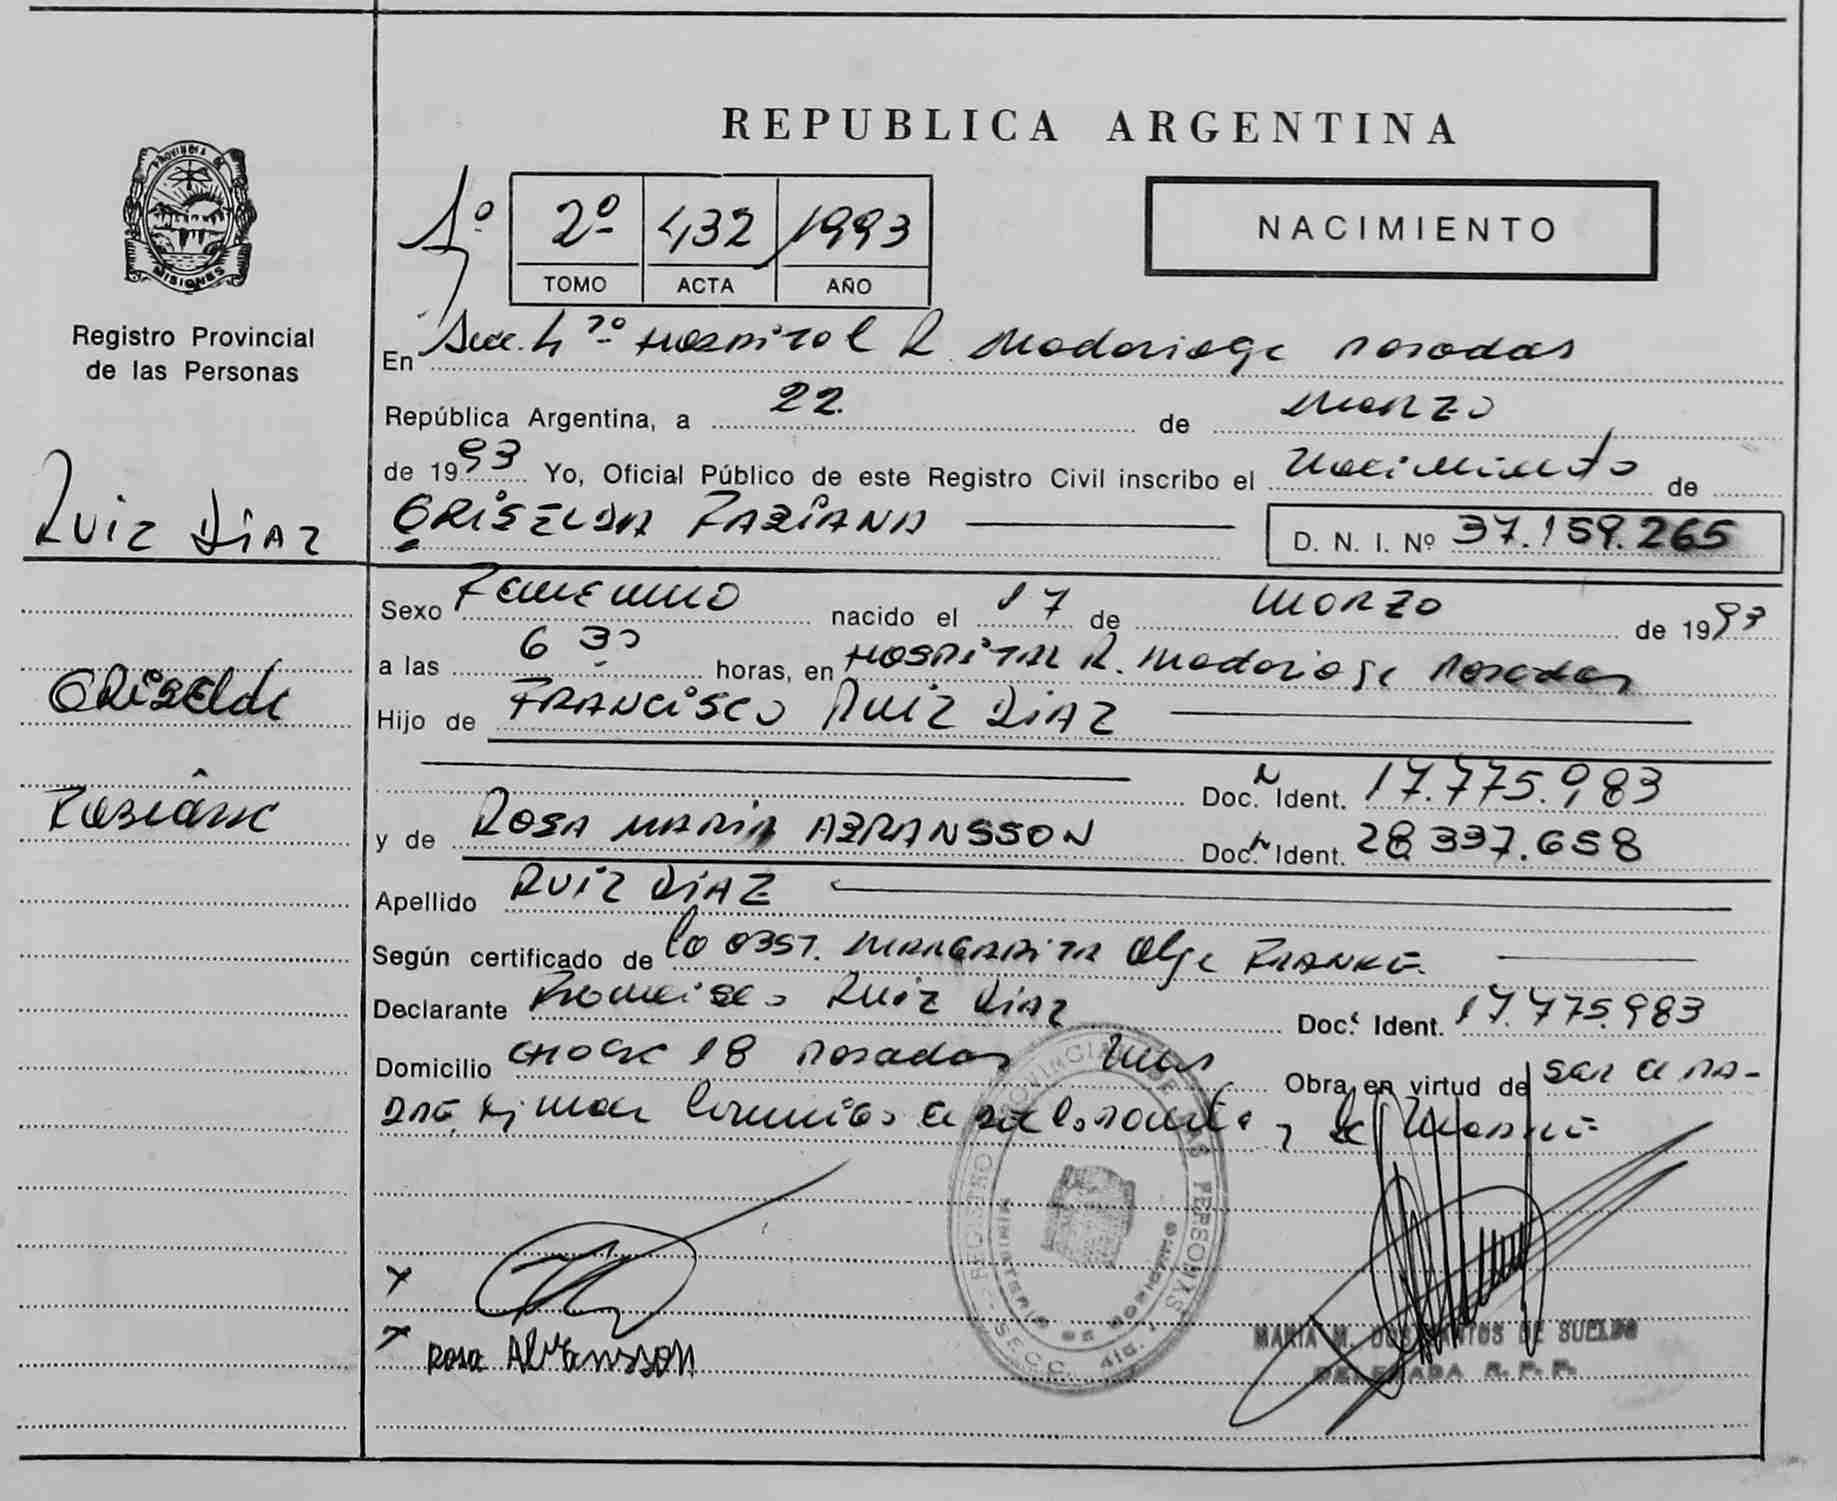 REPUBLICA ARGENTINA
PROVINCIA DE MISIONES
Registro Provincial
de las Personas
1º 2º 432 1993
TOMO ACTA AÑO
NACIMIENTO
En Secc. 4ta Hospital R. Madariaga Posadas
República Argentina, a 22 de Marzo
de 1993 Yo, Oficial Público de este Registro Civil inscribo el Nacimiento de
GRISELDA FABIANA
D. N. I. Nº 37.159.265
RUIZ DIAZ
Sexo Femenino nacido el 17 de Marzo de 1993
a las 6 30 horas, en Hospital R. Madariaga Posadas
GRISELDA
Hijo de FRANCISCO RUIZ DIAZ
Doc. Ident. 17.775.983
Fabiana
y de ROSA MARIA ABRANSSON Doc. Ident. 28.337.658
Apellido RUIZ DIAZ
Según certificado de la OBST. MARGARITA Olga FRANKE
Declarante Francisco Ruiz Diaz Doc. Ident. 17.775.983
Domicilio CHACRA 18 Posadas Mnes Obra en virtud de ser el pa-
dre, firman conmigo el declarante y la Madre
REGISTRO PROVINCIAL DE LAS PERSONAS
SECC. 4ta.
MARIA M. DOS SANTOS DE SUELDO
DELEGADA R. P. P.
x
x Rosa